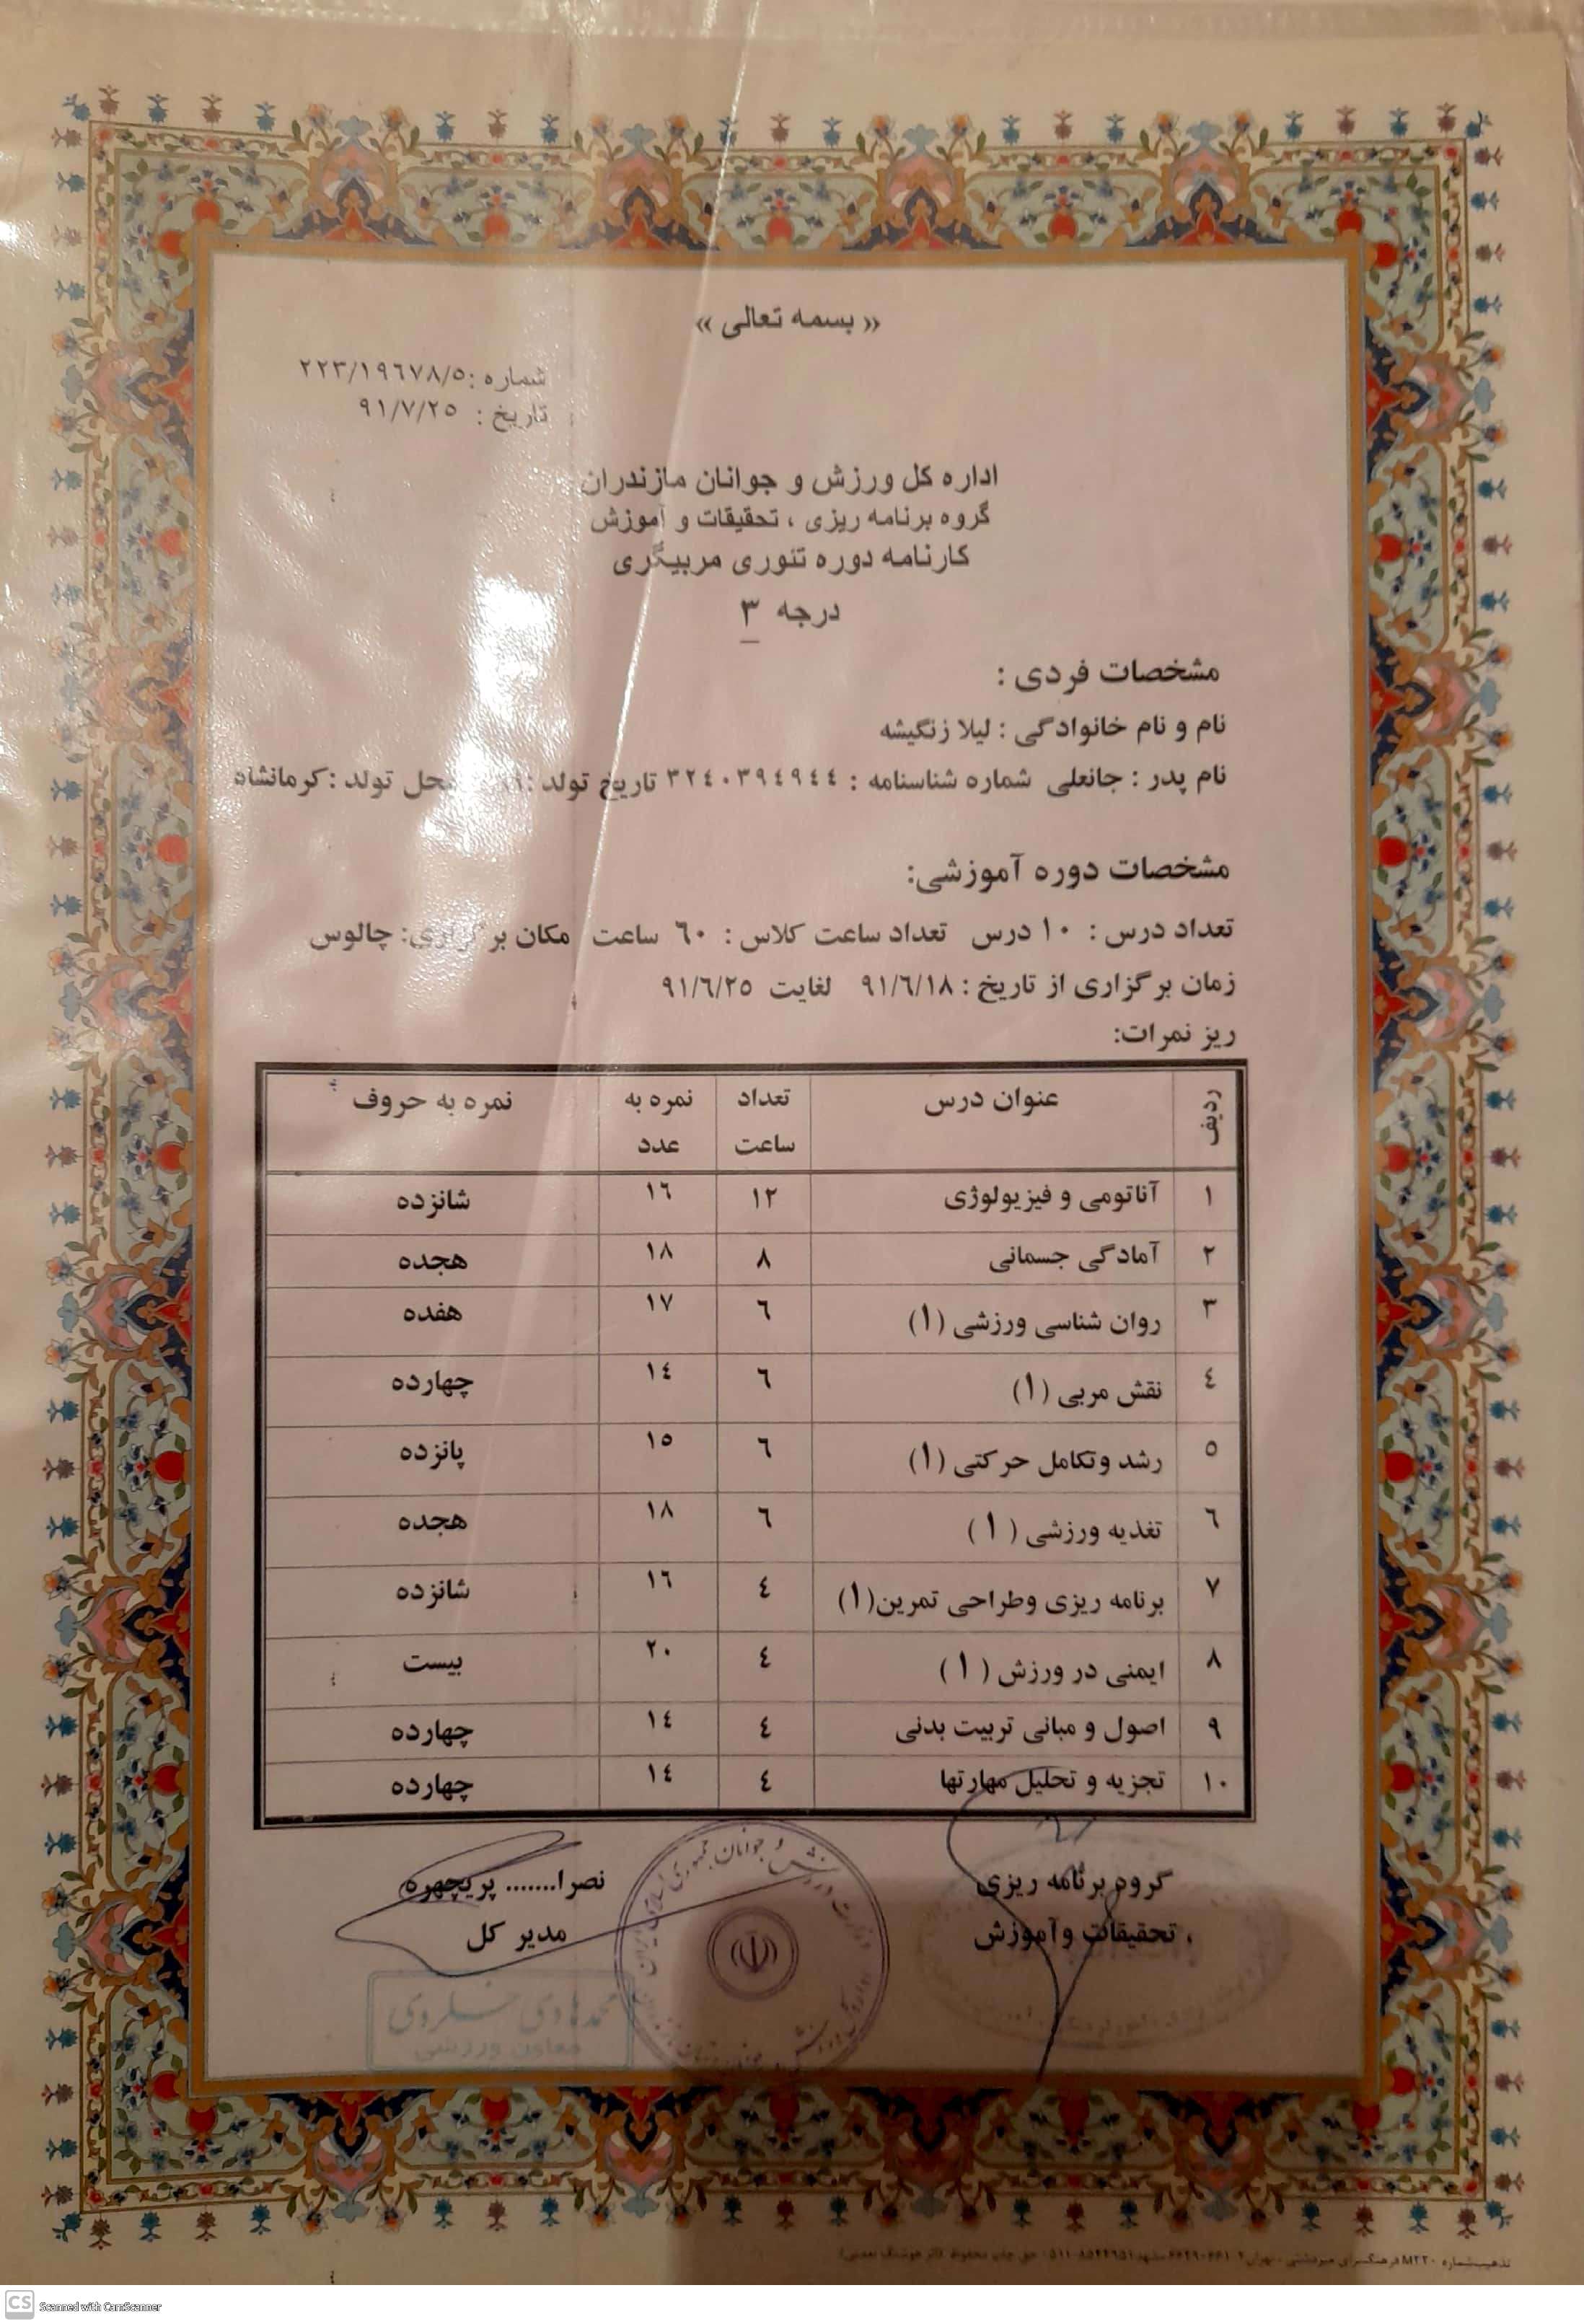 « بسمه تعالی »
شماره :۲۲۳/۱۹٦۷۸/٥
تاریخ : ۹۱/۷/۲٥
اداره کل ورزش و جوانان مازندران
گروه برنامه ریزی ، تحقیقات و آموزش
کارنامه دوره تئوری مربیگری
درجه ۳
مشخصات فردی :
نام و نام خانوادگی : لیلا زنگیشه
نام پدر : جانعلی شماره شناسنامه : ۳۲٤۰۳۹٤۹٤٤ تاریخ تولد : محل تولد :کرمانشاه
مشخصات دوره آموزشی:
تعداد درس : ۱۰ درس تعداد ساعت کلاس : ٦۰ ساعت مکان برگزاری: چالوس
زمان برگزاری از تاریخ : ۹۱/٦/۱۸ لغایت ۹۱/٦/۲٥
ریز نمرات:
ردیف عنوان درس تعداد ساعت نمره به عدد نمره به حروف
۱ آناتومی و فیزیولوژی ۱۲ ۱٦ شانزده
۲ آمادگی جسمانی ۸ ۱۸ هجده
۳ روان شناسی ورزشی (۱) ٦ ۱۷ هفده
٤ نقش مربی (۱) ٦ ۱٤ چهارده
٥ رشد وتکامل حرکتی (۱) ٦ ۱٥ پانزده
٦ تغذیه ورزشی (۱ ) ٦ ۱۸ هجده
۷ برنامه ریزی وطراحی تمرین(۱) ٤ ۱٦ شانزده
۸ ایمنی در ورزش ( ۱ ) ٤ ۲۰ بیست
۹ اصول و مبانی تربیت بدنی ٤ ۱٤ چهارده
۱۰ تجزیه و تحلیل مهارتها ٤ ۱٤ چهارده
گروه برنامه ریزی نصرا....... پریچهره
، تحقیقات وآموزش مدیر کل
محمدهادی خسروی
معاون ورزشی
CS Scanned with CamScanner